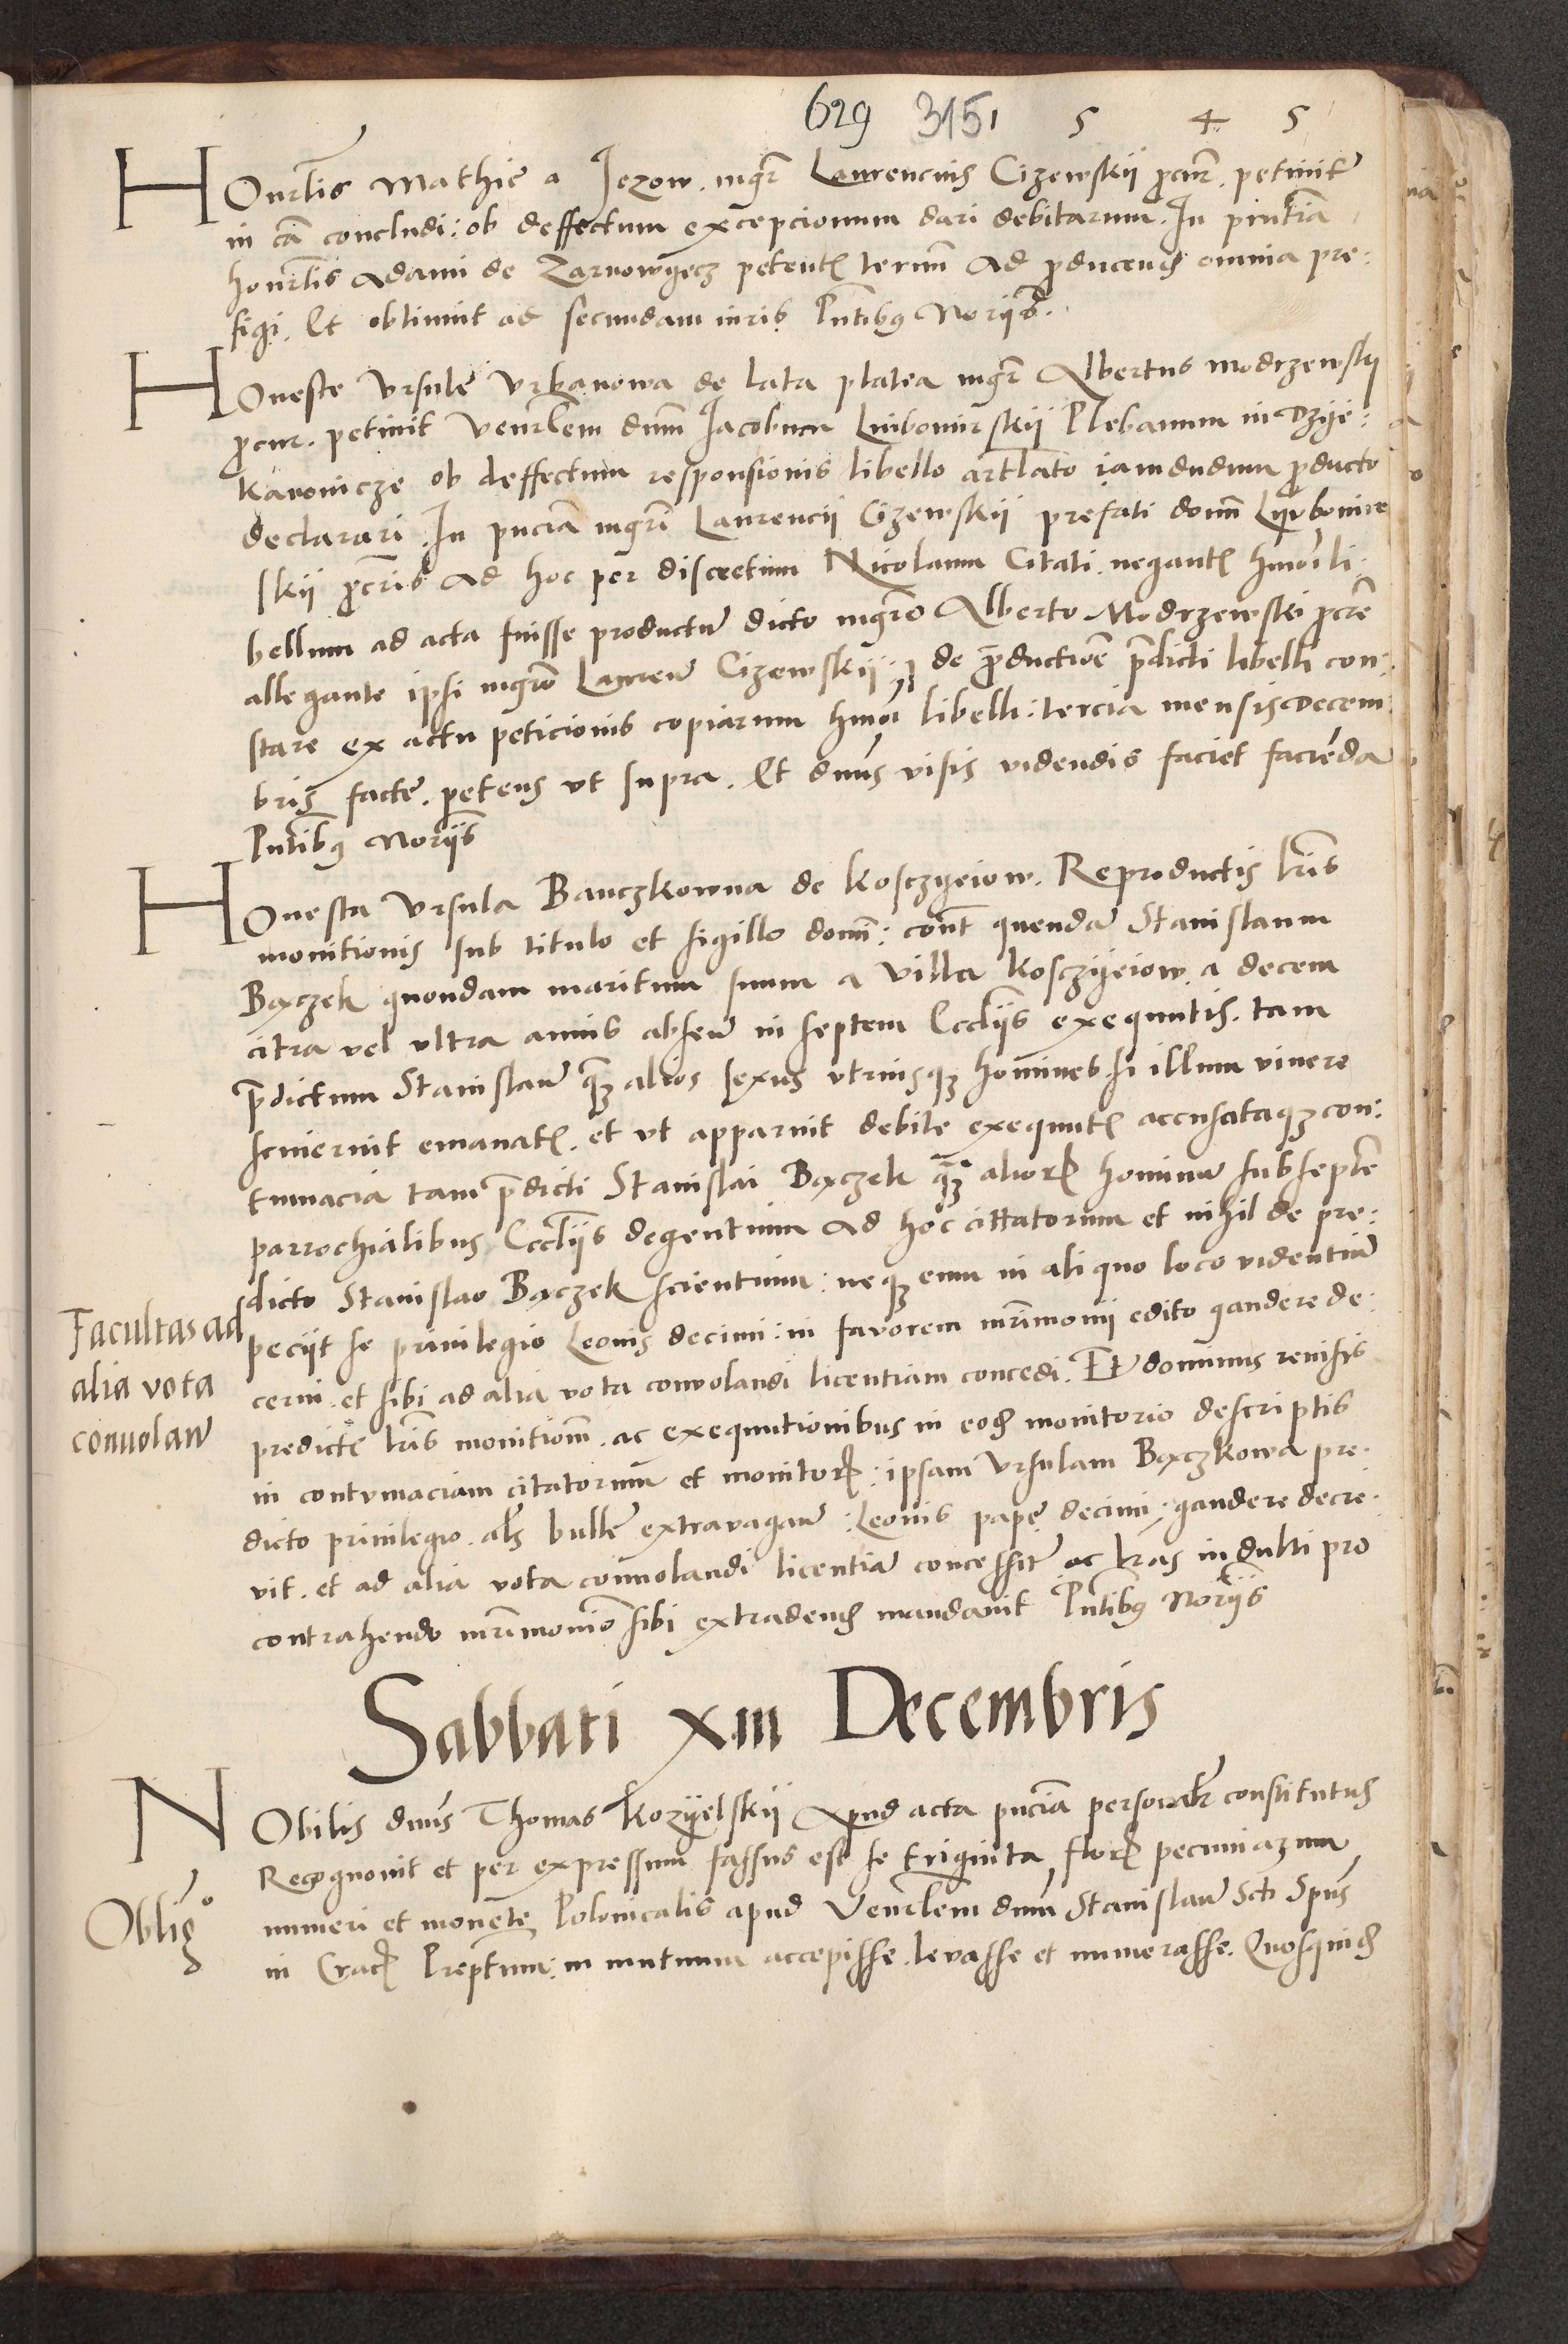 629 315 5 4 5
Honrlis Mathie a Jezow. mgr Laurencius Cizewskij procur. petivit
in ca concludi: ob deffectum excepcionum dari debitarum. In pntia
honrlis Adami de Zarnowyecz petent termn ad producend omnia pre:
figi. Et obtinuit ad secundam iuris Pntibus Noriis.
Honeste Ursule Urbanowa de lata platea mgr Albertus Modrzewskij
procur. petivit Venrlem dnm Jacobum Lubomirskij Plebanum in Dzye:
kanonicze ob deffectum responsionis libello artlato iamdudum producto
declarari. In pncia mgri Laurencij Cizewskij prefati domi Lyubomir
skij procris ad hoc per discretum Nicolaum Citati. negant hmoi li:
bellum ad acta fuisse productu dicto mgro Alberto Modrzewski procre
allegante ipsi mgro Lauren Cizewskij: de productioe pdicti libelli con:
stare ex actu peticionis copiarum hmoi libelli: tercia mensis decem:
bris facte. petens ut supra. Et dnus visis videndis faciet facienda
Pntibus Noriis
Honesta Ursula Banczkowna de Kosczyeiow. Reproductis lris
monitionis sub titulo et sigillo domi: cont quenda Stanislaum
Baczek quondam maritum suum a villa Kosczyeiow. a decem
citra vel ultra annis absen in septem Eccliis exequutis. tam
pdictum Stanislau quam alios sexus utriusque homines. si illum vivere
sciverint emanat. et ut apparuit debite exequut accusataque con:
tumacia tam pdicti Stanislai Baczek quam alior hominu sub septe
parrochialibus Eccliis degentium ad hoc cittatorum et nihil de pre:
dicto Stanislao Baczek scientium: neque eum in aliquo loco videntiu
peciit se privilegio Leonis decimi: in favorem mrimonii edito gaudere de:
cerni. et sibi ad alia vota convolandi licentiam concedi. Et dominus revisis
predicte lris monitiom. ac exequutionibus in eod monitorio descriptis
in contumaciam citatorum et monitor: ipsam Ursulam Baczkowa pre:
dicto privilegio. als bulle extravagan: Leonis pape decimi: gaudere decre:
vit. et ad alia vota convolandi licentia concessit ac lras indulti pro
contrahendo mrimonio sibi extradend mandavit Pntibus Noriis
Facultas ad
alia vota
convolan
Sabbati xiii Decembris
Nobilis dnus Thomas Kozyelskij Apud acta pncia personalr constitutus
Recognovit et per expressum fassus est se triginta flor pecuniarum
numeri et monete Polonicalis apud Venrlem dnm Stanislau Scti Spus
in Crac Preptum: in mutuum accepisse. levasse et numerasse. Quosquid
Oblig